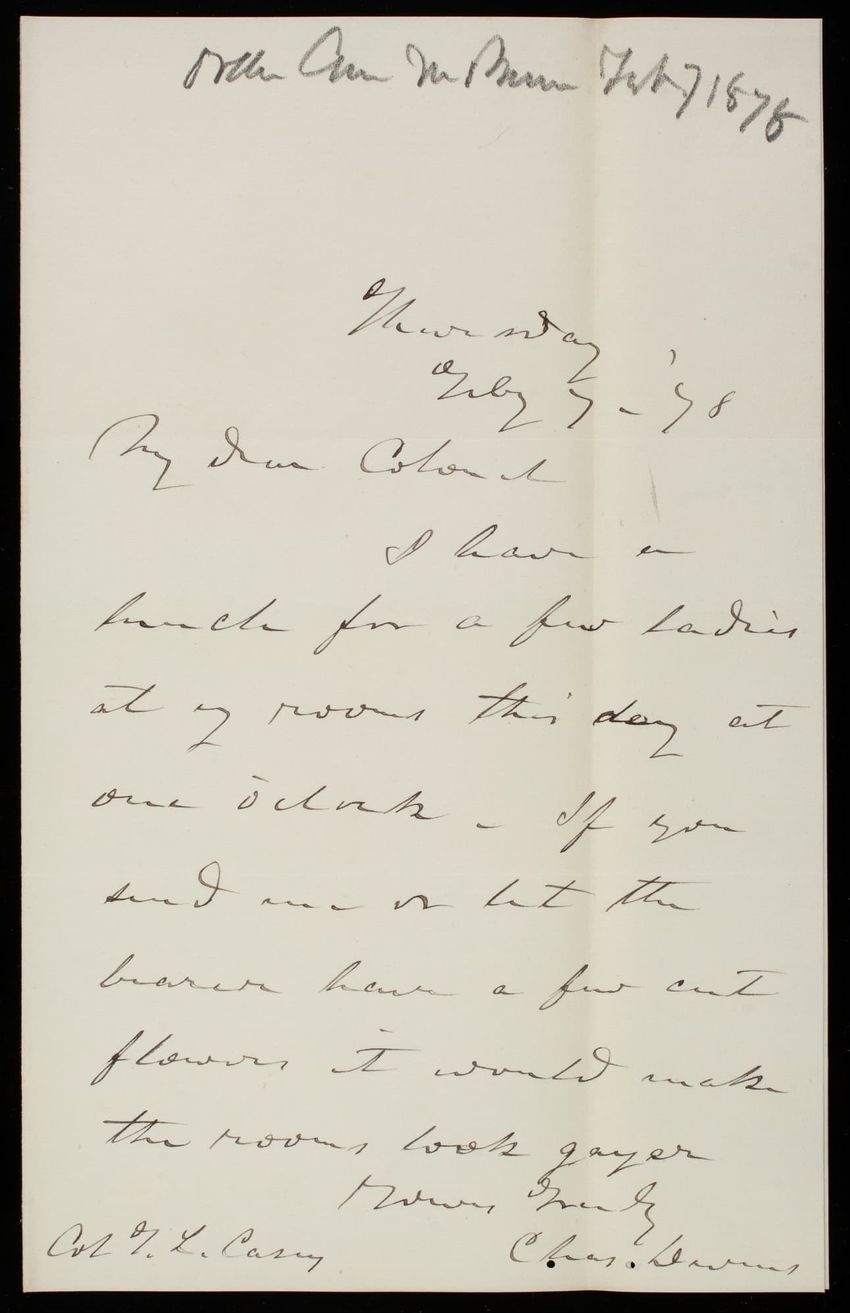 Feby 7 1878
Thursday
Feby 7 - '78
My dear Colonel
I have a
lunch for a few ladies
at my rooms this day at
one o'clock - If you
send me or let the
bearer have a few cut
flowers it would make
the rooms look gayer
Yours Truly
Chas. Devens
Col T. L. Casey